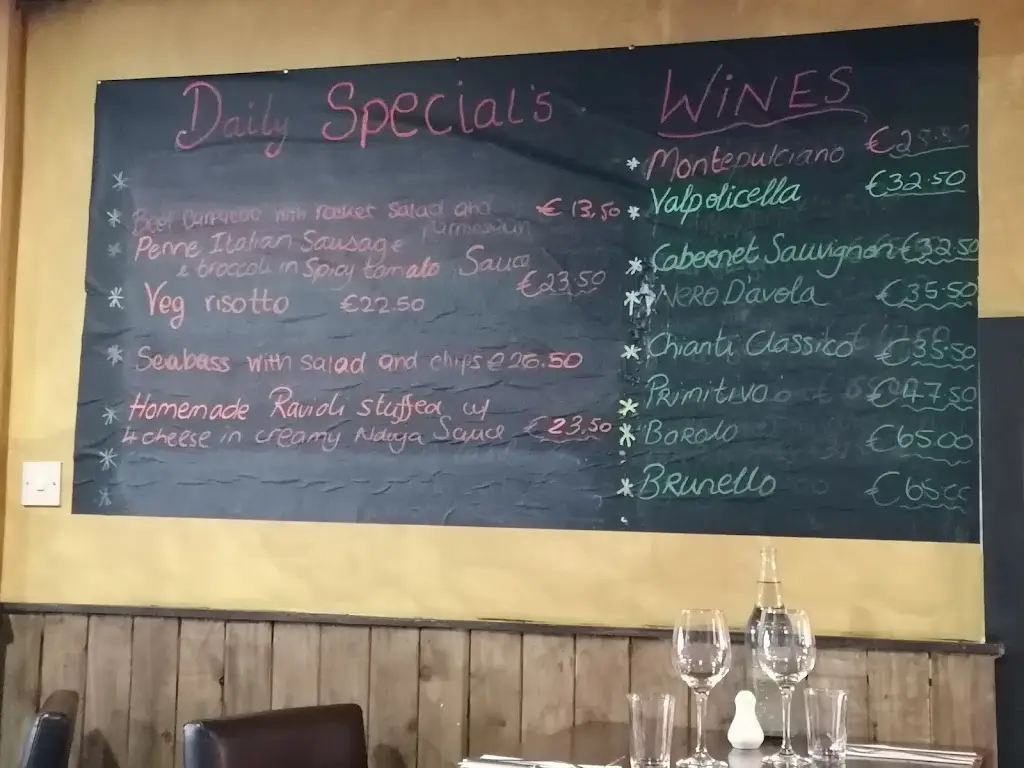 Daily Special's
Beef Carpaccio with rocket Salad and
parmesan
€ 13.50
Penne Italian Sausage
& broccoli in Spicy tomato Sauce
€23.50
Veg risotto €22.50
Seabass with salad and chips €26.50
Homemade Ravioli stuffed w/
4 cheese in creamy Nduya Sauce €23.50
WiNES
Montepulciano
Valpolicella €32.50
Cabernet Sauvignon €32.50
NERO D'avola €35.50
Chianti Classico €35.50
Primitivo €47.50
Borolo €65.00
Brunello